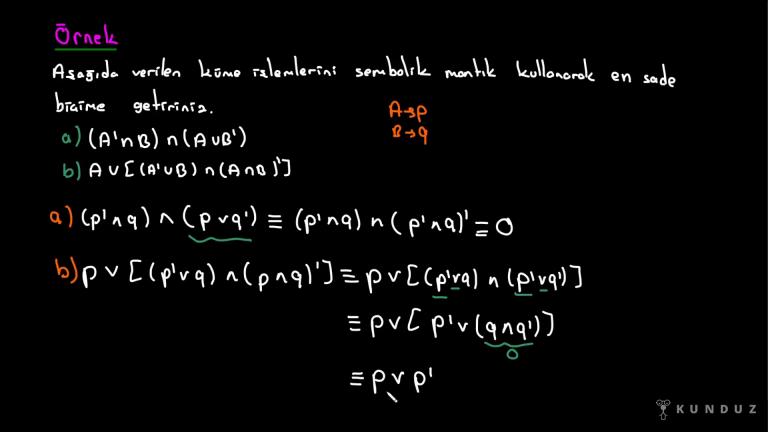 Örnek
Aşağıda verilen küme işlemlerini sembolik mantık kullanarak en sade
biçime getiriniz.
A→p
B→q
a) (A'∩B)∩(A∪B')
b) A∪[(A'∪B)∩(A∩B)']
a) (p'∧q) ∧ (p∨q') ≡ (p'∧q) ∧ (p'∧q)' ≡ 0
b) p∨[(p'∨q)∧(p∧q)'] ≡ p∨[(p'∨q)∧(p'∨q')]
≡ p∨[p'∨(q∧q')]
0
≡ p∨p'
KUNDUZ